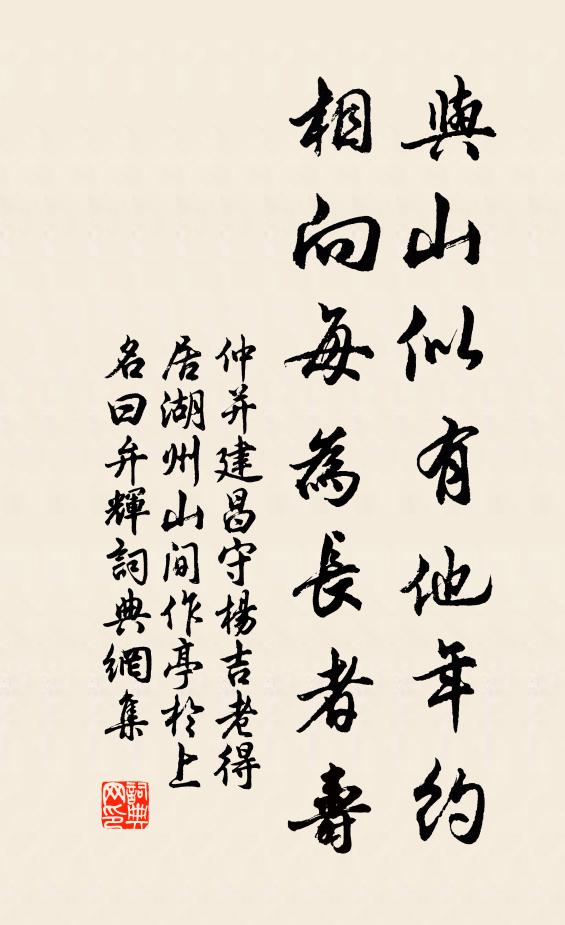 與山似有他年約
相向每為長者壽
仲并建昌守楊吉老得
居湖州山間作亭於上
名曰弁輝詞典網集
詞典网印